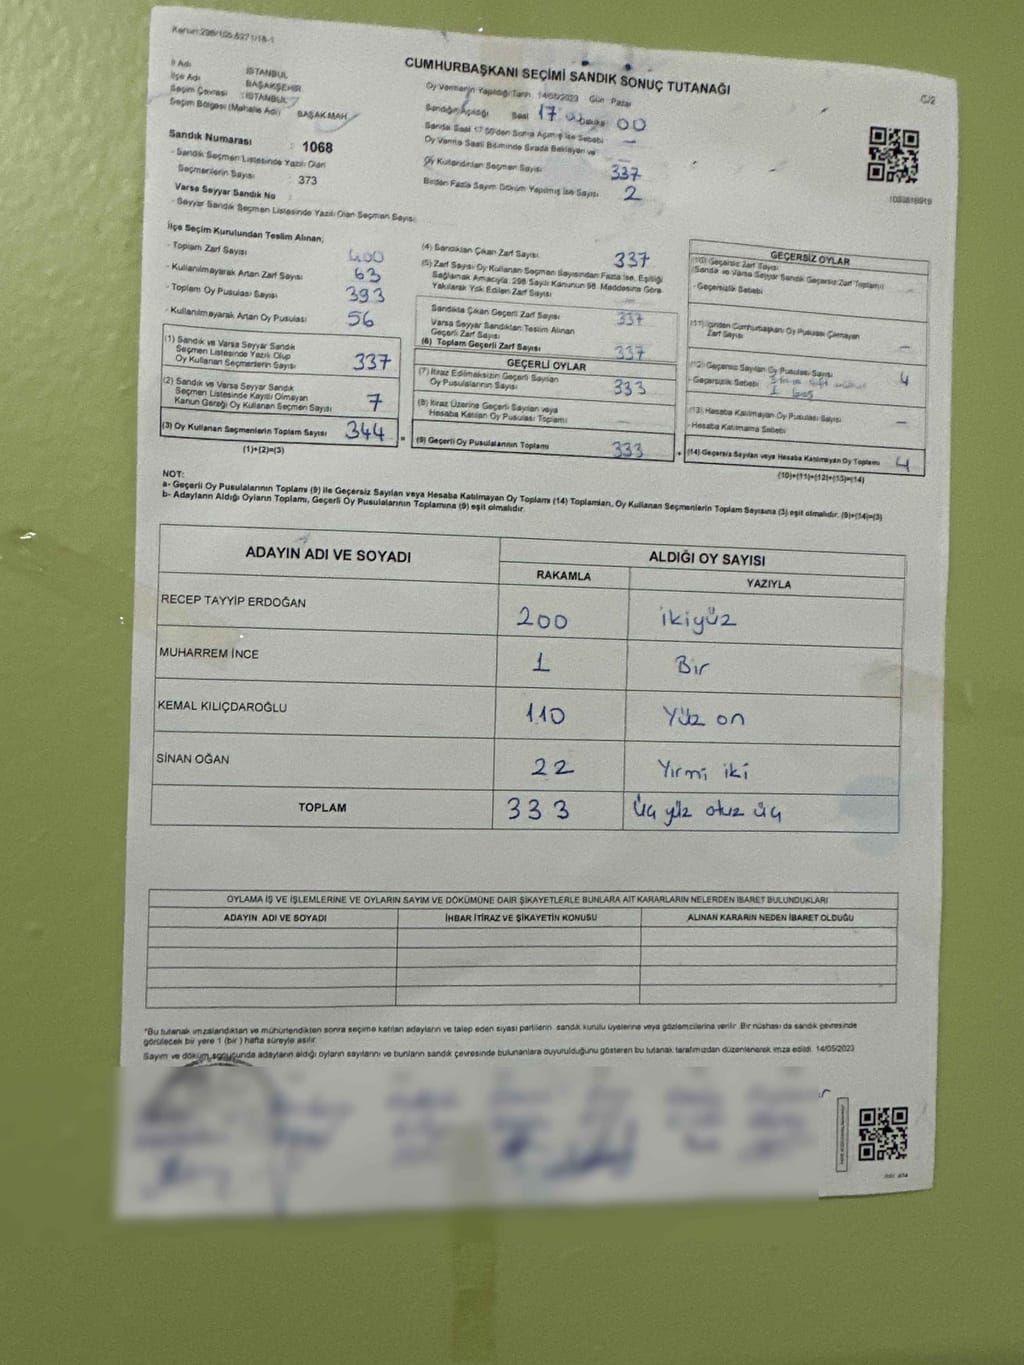 Kanun:298/105,6271/18-1
CUMHURBAŞKANI SEÇİMİ SANDIK SONUÇ TUTANAĞI
C/2
İl Adı : İSTANBUL
İlçe Adı BAŞAKŞEHİR
Seçim Çevresi : İSTANBUL
Seçim Bölgesi (Mahalle Adı) BAŞAK MAH
Sandık Numarası : 1068
- Sandık Seçmen Listesinde Yazılı Olan
Seçmenlerin Sayısı : 373
Varsa Seyyar Sandık No :
- Seyyar Sandık Seçmen Listesinde Yazılı Olan Seçmen Sayısı:
Oy Vermenin Yapıldığı Tarih 14/05/2023 Gün Pazar
Sandığın Açıldığı Saat 17 Dakika 00
Sandık Saat 17.00'den Sonra Açılmış İse Sebebi —
Oy Verme Saati Bitiminde Sırada Bekleyen ve
Oy Kullandırılan Seçmen Sayısı 337
Birden Fazla Sayım Döküm Yapılmış İse Sayısı 2
İlçe Seçim Kurulundan Teslim Alınan;
- Toplam Zarf Sayısı 400
- Kullanılmayarak Artan Zarf Sayısı 63
- Toplam Oy Pusulası Sayısı 393
- Kullanılmayarak Artan Oy Pusulası 56
(1) Sandık ve Varsa Seyyar Sandık
Seçmen Listesinde Yazılı Olup
Oy Kullanan Seçmenlerin Sayısı 337
(2) Sandık ve Varsa Seyyar Sandık
Seçmen Listesinde Kayıtlı Olmayan
Kanun Gereği Oy Kullanan Seçmen Sayısı 7
(3) Oy Kullanan Seçmenlerin Toplam Sayısı 344 =
(1)+(2)=(3)
(4) Sandıktan Çıkan Zarf Sayısı 337
(5) Zarf Sayısı Oy Kullanan Seçmen Sayısından Fazla İse, Eşitliği
Sağlamak Amacıyla, 298 Sayılı Kanunun 98. Maddesine Göre
Yakılarak Yok Edilen Zarf Sayısı
Sandıkta Çıkan Geçerli Zarf Sayısı 337
Varsa Seyyar Sandıktan Teslim Alınan
Geçerli Zarf Sayısı
(6) Toplam Geçerli Zarf Sayısı 337
GEÇERLİ OYLAR
(7) İtiraz Edilmeksizin Geçerli Sayılan
Oy Pusulalarının Sayısı 333
(8) İtiraz Üzerine Geçerli Sayılan veya
Hesaba Katılan Oy Pusulası Toplamı —
(9) Geçerli Oy Pusulalarının Toplamı 333 +
GEÇERSİZ OYLAR
(10) Geçersiz Zarf Sayısı
(Sandık ve Varsa Seyyar Sandık Geçersiz Zarf Toplamı)
- Geçersizlik Sebebi
(11) İçinden Cumhurbaşkanı Oy Pusulası Çıkmayan
Zarf Sayısı —
(12) Geçersiz Sayılan Oy Pusulası Sayısı 4
- Geçersizlik Sebebi
(13) Hesaba Katılmayan Oy Pusulası Sayısı —
- Hesaba Katılmama Sebebi
(14) Geçersiz Sayılan veya Hesaba Katılmayan Oy Toplamı 4
(10)+(11)+(12)+(13)=(14)
NOT:
a- Geçerli Oy Pusulalarının Toplamı (9) ile Geçersiz Sayılan veya Hesaba Katılmayan Oy Toplamı (14) Toplamları, Oy Kullanan Seçmenlerin Toplam Sayısına (3) eşit olmalıdır. (9)+(14)=(3)
b- Adayların Aldığı Oyların Toplamı, Geçerli Oy Pusulalarının Toplamına (9) eşit olmalıdır.
ADAYIN ADI VE SOYADI
ALDIĞI OY SAYISI
RAKAMLA YAZIYLA
RECEP TAYYİP ERDOĞAN 200 ikiyüz
MUHARREM İNCE 1 Bir
KEMAL KILIÇDAROĞLU 110 Yüz on
SİNAN OĞAN 22 Yirmi iki
TOPLAM 333 üç yüz otuz üç
OYLAMA İŞ VE İŞLEMLERİNE VE OYLARIN SAYIM VE DÖKÜMÜNE DAİR ŞİKAYETLERLE BUNLARA AİT KARARLARIN NELERDEN İBARET BULUNDUKLARI
ADAYIN ADI VE SOYADI İHBAR İTİRAZ VE ŞİKAYETİN KONUSU ALINAN KARARIN NEDEN İBARET OLDUĞU
*Bu tutanak imzalandıktan ve mühürlendikten sonra seçime katılan adayların ve talep eden siyasi partilerin sandık kurulu üyelerine veya gözlemcilerine verilir. Bir nüshası da sandık çevresinde
görülecek bir yere 1 (bir) hafta süreyle asılır.
Sayım ve döküm sonucunda adayların aldığı oyların sayılarını ve bunların sandık çevresinde bulunanlara duyurulduğunu gösteren bu tutanak tarafımızdan düzenlenerek imza edildi. 14/05/2023